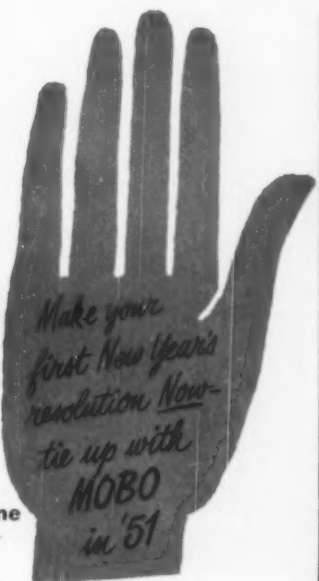 Make your
first New Year's
resolution Now-
tie up with
MOBO
in '51
ne